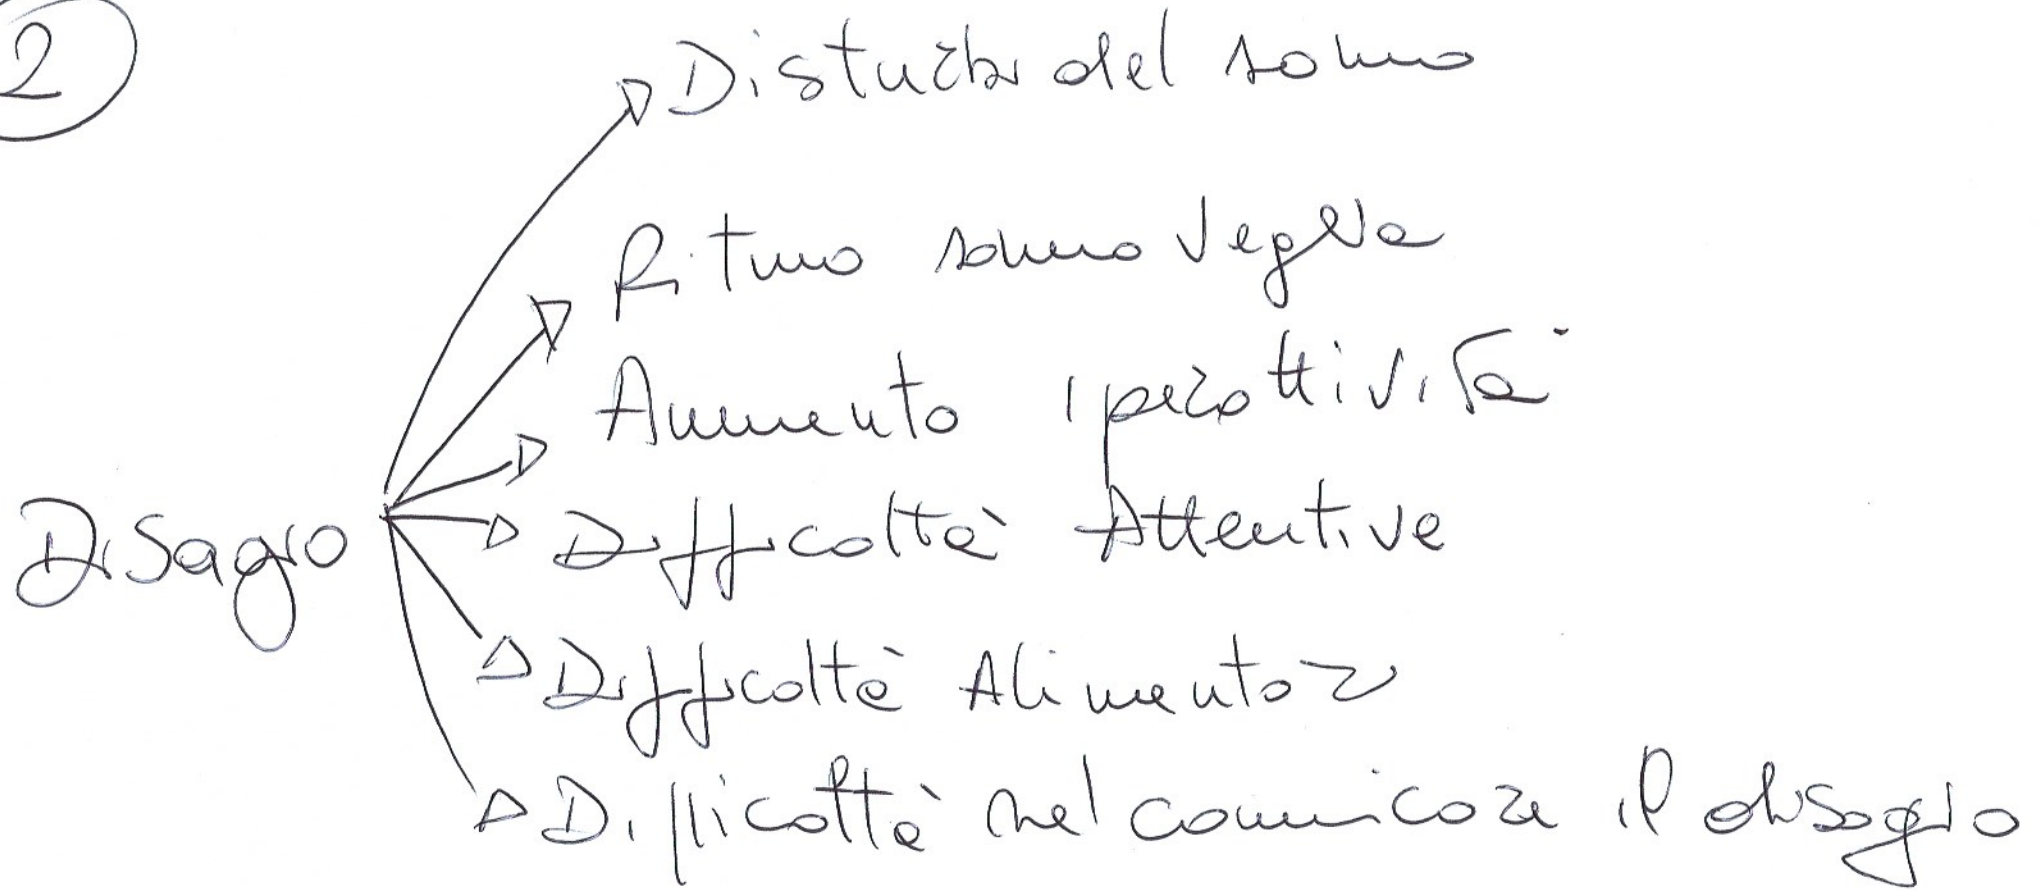 2
Disturbi del sonno
Ritmo sonno veglia
Aumento iperattività
Disagio
Difficoltà Attentive
Difficoltà Alimentari
Difficoltà nel comunicare il disagio